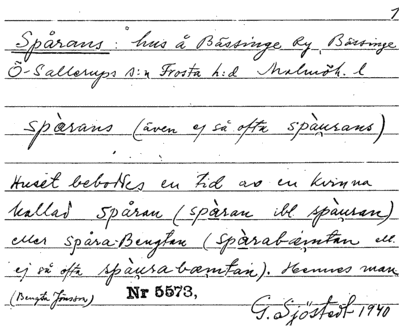 1
Spårans: hus å Bässinge by, Bässinge
Ö-Sallerups s:n Frosta h:d Malmöh. l
spàrans (även ej så ofta spàurans)
Huset beboddes en tid av en kvinna
kallad Spåran (spàran ibl spàuran)
eller Spåra-Bengtan (spàrabæmtan ell.
ej så ofta spàurabæmtan). Hennes man
(Bengta Jönsson) Nr 5573,
G. Sjöstedt 1940